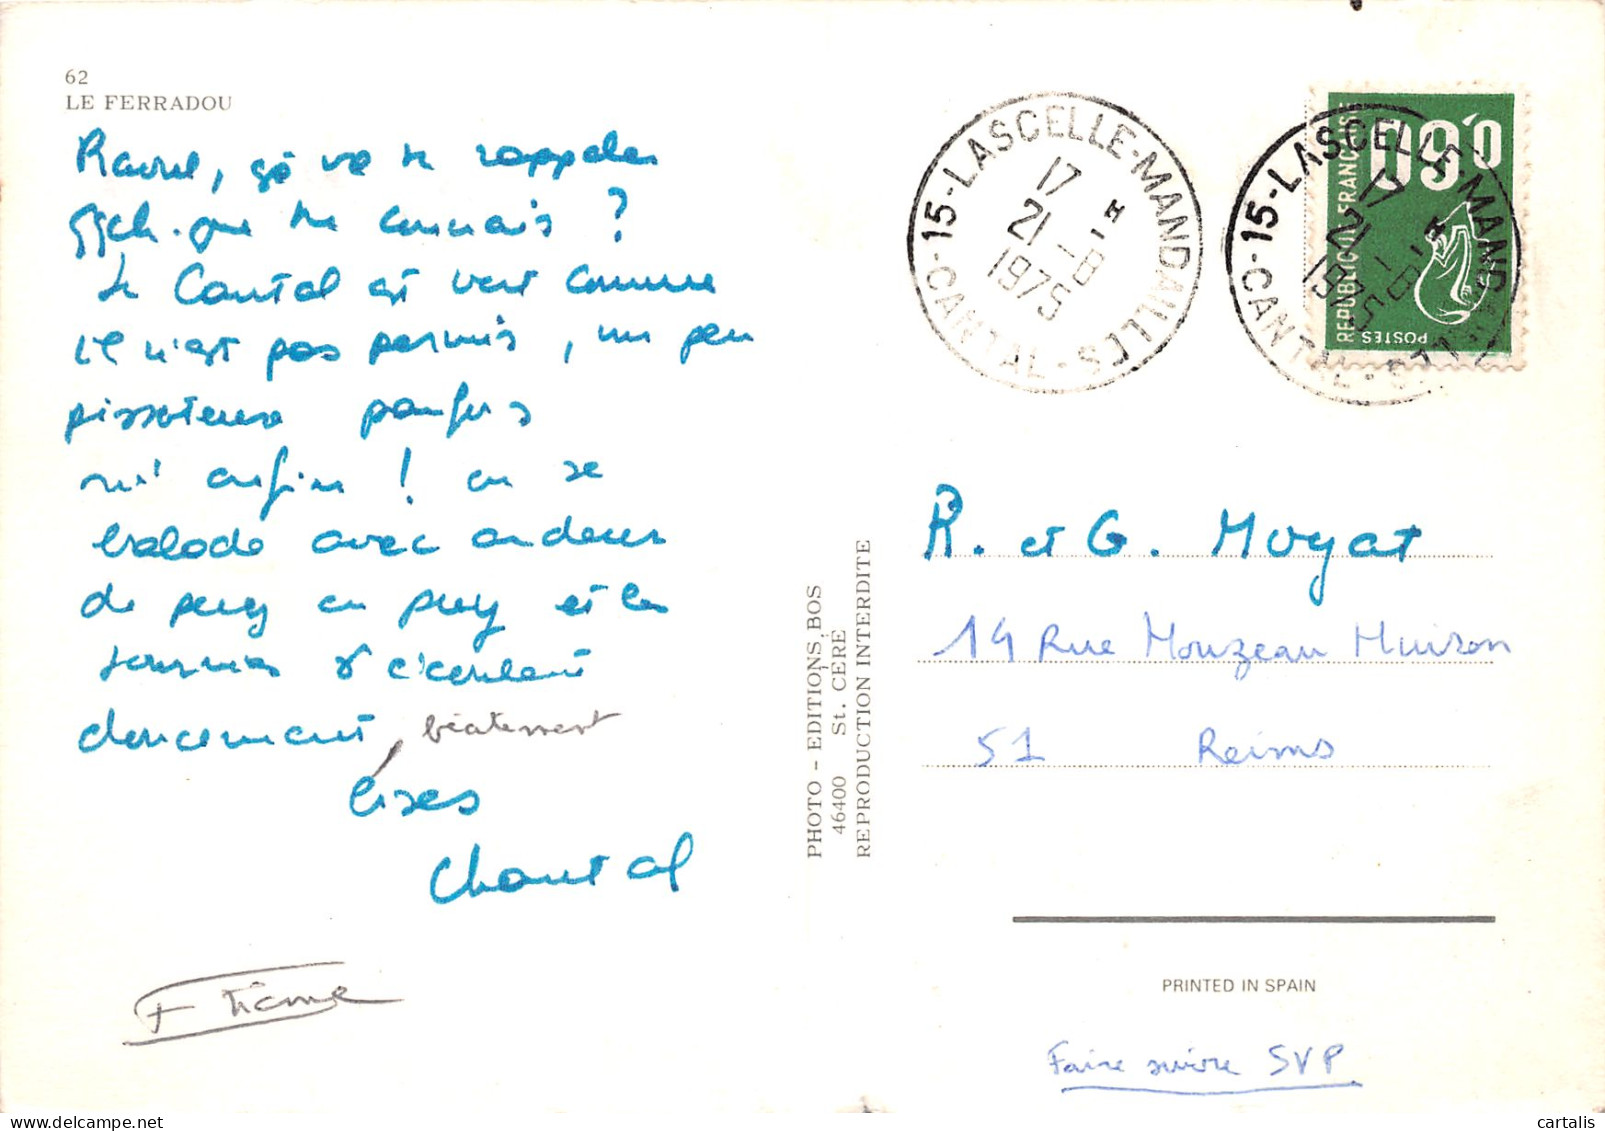 62
LE FERRADOU
Raoul, ça va te rappeler
qqch. que tu connais ?
Le Cantal est vert comme
il n'est pas permis, un peu
pisseteux parfois
mais enfin ! on se
balade avec ardeur
de puy en puy et les
journées s'écoulent
doucement, béatement
Bises
Chantal
Etienne
PHOTO - EDITIONS BOS
46400 St. CÉRÉ
REPRODUCTION INTERDITE
15-LASCELLE-MANDAILLES-CANTAL
17 H
21 - 8
1975
15-LASCELLE-MANDAILLES-CANTAL
17 H
21 - 8
1975
0,60
REPUBLIQUE FRANCAISE
POSTES
R. et G. Moyat
19 Rue Houzeau Muiron
51 Reims
PRINTED IN SPAIN
Faire suivre SVP
cartalis